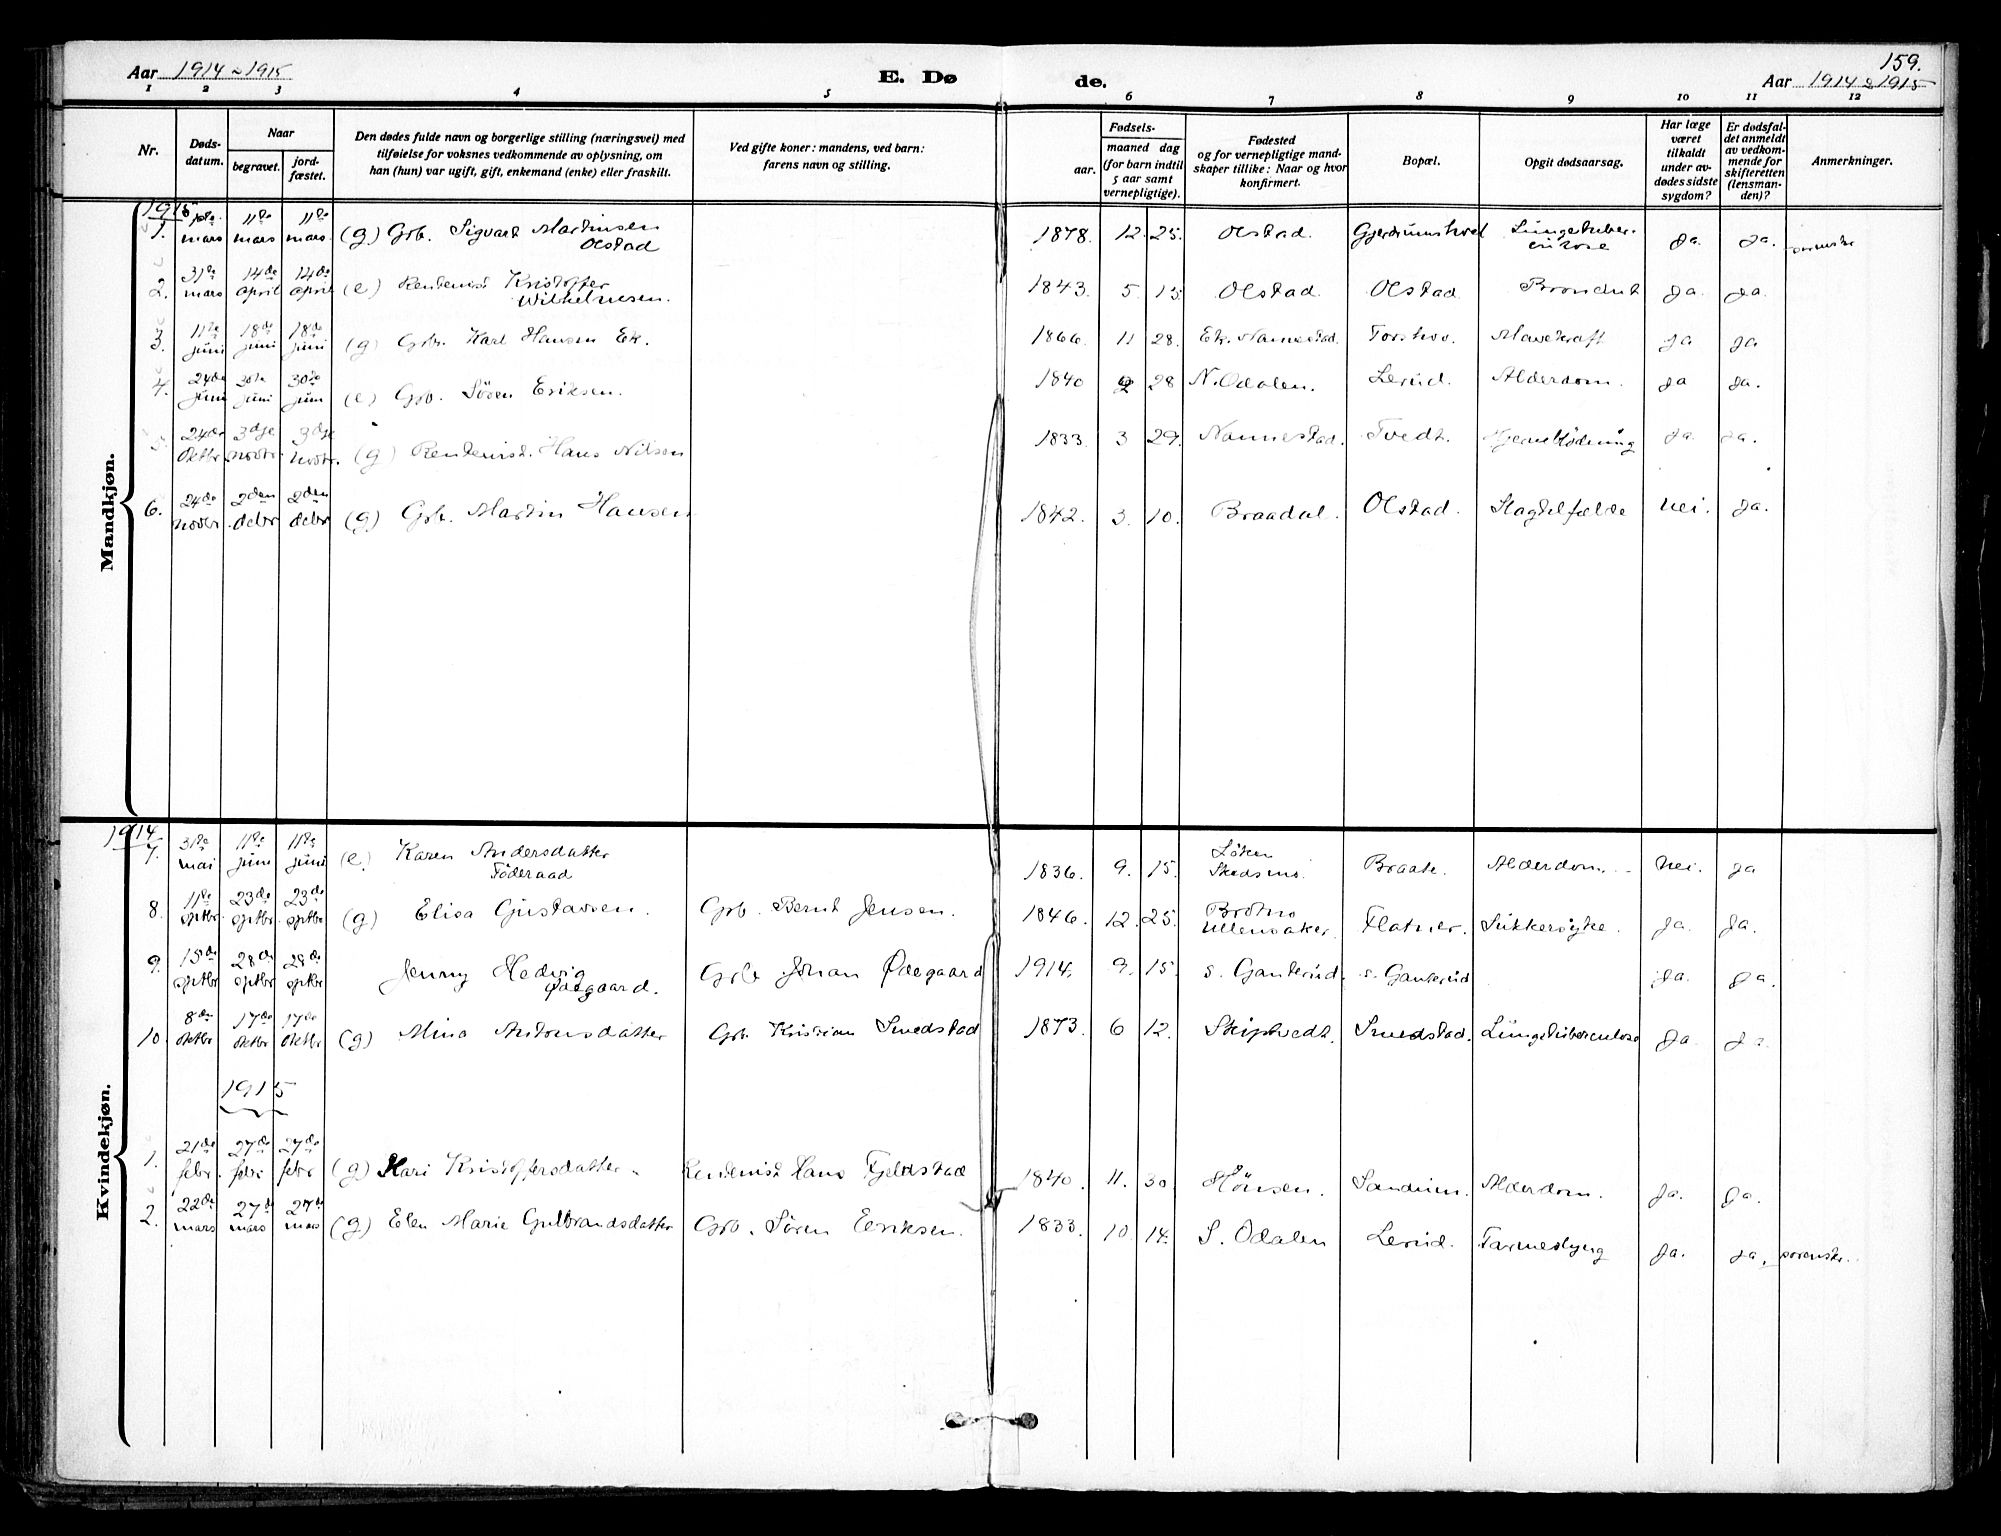 159.
Aar 1914 & 1915
E. Dø
de.
Aar 1914 & 1915
1 2 3 4 5 6 7 8 9 10 11 12
Nr.
Døds-
datum.
Naar
begravet.
jord-
fæstet.
Den dødes fulde navn og borgerlige stilling (næringsvei) med
tilføielse for voksnes vedkommende av oplysning, om
han (hun) var ugift, gift, enkemand (enke) eller fraskilt.
Ved gifte koner: mandens, ved barn:
farens navn og stilling.
Fødsels-
aar.
maaned dag
(for barn indtil
5 aar samt
vernepligtige).
Fødested
og for vernepligtige mand-
skaper tillike: Naar og hvor
konfirmert.
Bopæl.
Opgit dødsaarsag.
Har læge
været
tilkaldt
under av-
dødes sidste
sygdom?
Er dødsfal-
det anmeldt
av vedkom-
mende for
skifteretten
(lensman-
den)?
Anmerkninger.
Mandkjøn.
1915
1. mars 11te mars 11te mars (g) Grb. Sigvart Martinsen Olstad 1878 12. 25. Olstad. Lungetuber- Ja. Ja.
2. 31te mars 14de april 14de april (e) Rentenist Kristoffer Wilhelmsen. 1843. 5. 15. Olstad. Olstad Ja. Ja.
3. 11te juni 18de juni 18de juni (g) Grb. Karl Hansen Ek. 1866. 11 28. Ek. Nannestad. Torshov. Mavekræft Ja Ja
4. 24de juni 30te juni 30te juni (e) Grb. Sören Eriksen. 1840 2 28 N. Odalen. Lerud. Alderdom. Ja Ja.
5. 24de oktbr 3dje novbr. 3dje novbr. (g) Rentenist. Hans Nilsen 1833. 3 29. Nannestad. Tvedt. Hjerneblödning Ja. Ja.
6. 24de novbr. 2den decbr 2den decbr (g) Grb. Martin Hansen 1842. 3. 10. Braadal. Olstad. Slagtilfælde Nei. Ja.
Kvindekjøn.
1914
7. 31te mai 11te juni 11te juni (e) Karen Andersdatter Föderaad 1836. 9. 15. Löken Skedsmo. Braate. Alderdom. Nei. Ja
8. 11te sptbr 23de sptbr 23de sptbr (g) Elisa Gustavsen. Grb. Bernt Jensen. 1846. 12. 25. Ullensaker. Flatner. Sukkersyke. Ja. Ja.
9. 15de sptbr 28de sptbr 28de sptbr Jenny Hedvig Ødegaard. Grb Johan Ødegaard 1914. 9. 15. s. Gankerud. s. Gankerud Ja. Ja.
10. 8de oktbr 17de oktbr 17de oktbr (g) Mina Antonsdatter Grb. Kristian Smedstad 1873. 6 12. Skiptvedt. Smedstad. Lungetuberculose Ja. Ja.
1915
1. 21de febr. 27de febr 27de febr (g) Kari Kristoffersdatter. Rentenist Hans Fjeldstad 1840. 11. 30. Hönsen. Sandum. Alderdom. Ja. Ja.
2. 22de mars 27de mars 27de mars (g) Elen Marie Gulbrandsdatter Grb. Sören Eriksen. 1833. 10. 14. S. Odalen Lerud. Tarmeslyng Ja. Ja.